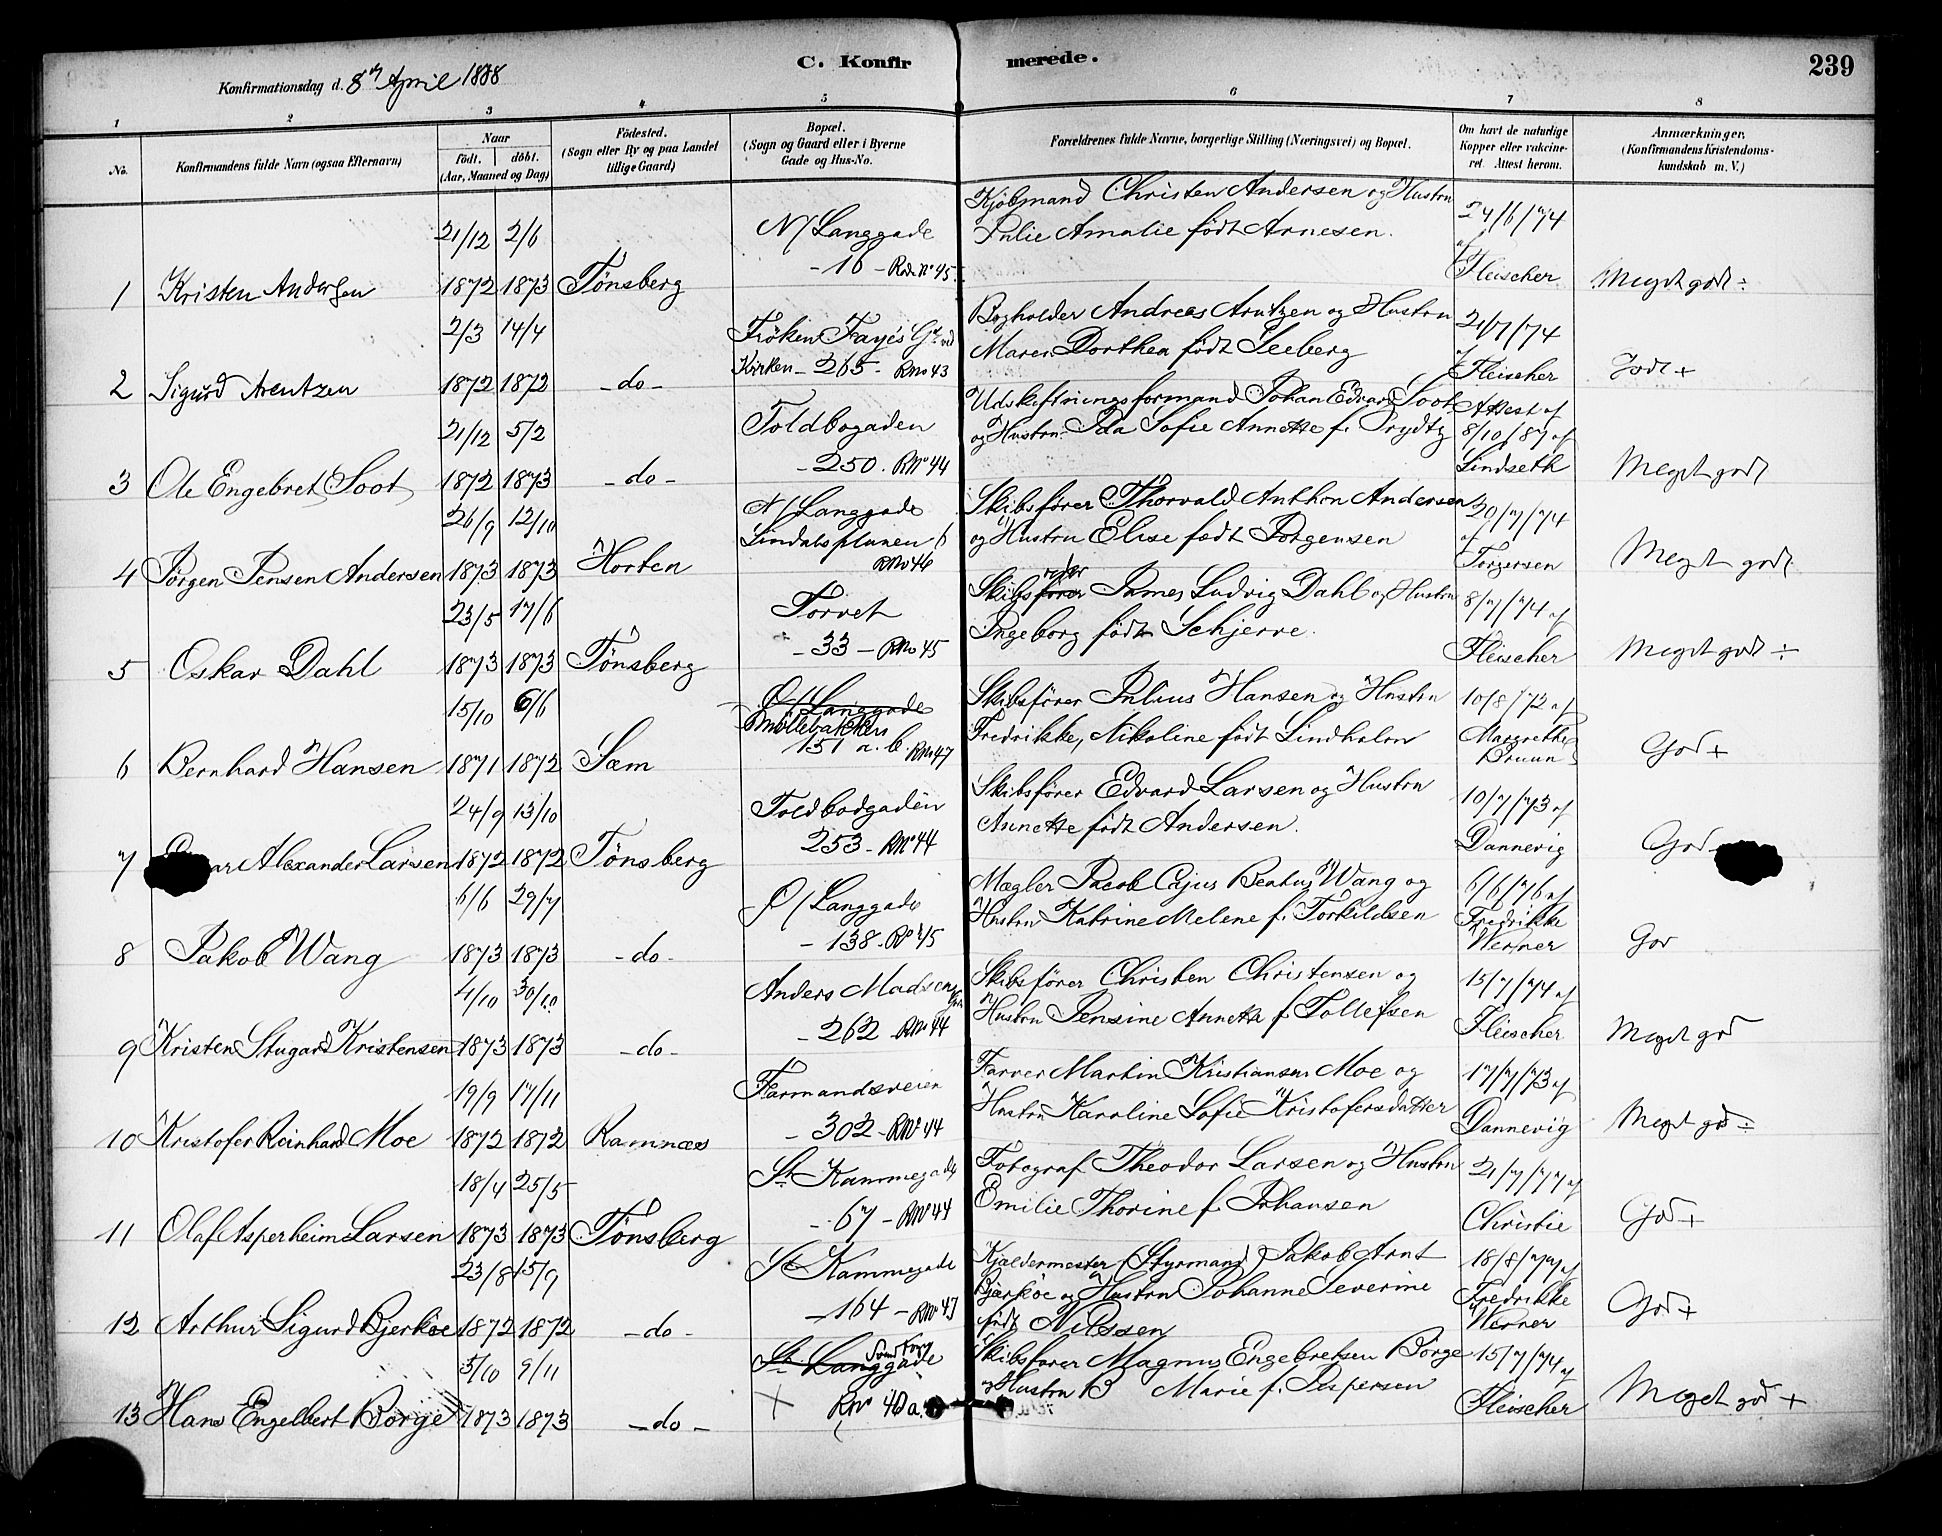 C. Konfirmerede.
239
Konfirmationsdag d. 8de April 1888
1 2 3 4 5 6 7 8
No.
Konfirmandens fulde Navn (ogsaa Efternavn)
Naar
født. | döbt.
(Aar, Maaned og Dag)
Födested.
(Sogn eller By og paa Landet
tillige Gaard)
Bopæl.
(Sogn og Gaard eller i Byerne
Gade og Hus-No.
Forældrenes fulde Navne, borgerlige Stilling (Næringsvei) og Bopæl.
Om havt de naturlige
Kopper eller vakcine-
ret. Attest herom.
Anmærkninger.
(Konfirmandens Kristendoms-
kundskab m. V.)
21/12 2/6 N/Langgade Kjøbmand Christen Andersen og Hustru 24/6/74
- 16 - Rd. No 45. Julie Amalie født Arnesen. af Fleischer
1 Kristen Andersen 1872 1873 Tønsberg Meget godt ÷
2/3 14/4 Frøken Fayes Gd ved Bogholder Andreas Arntzen og Hustru 21/7/74
Kirken - 265 - RNo 43 Maren Dorthea født Seeberg af Fleischer
2 Sigurd Arentzen 1872 1872 - do - Godt +
21/12 5/2 Toldbogaden Udskiftningsformand Johan Edvard Soot Attest af
- 250. RNo 44 og Hustru Ida Sofie Annette f. Prydtz 8/10/87 af Lindseth
3 Ole Engebret Soot 1872 1873 - do - Meget godt
26/9 12/10 N/Langgade Skibsfører Thorvald Anthon Andersen 20/7/74
Lindalsplanen 6 og Hustru Elise født Jørgensen af Torgersen
4 Jørgen Jensen Andersen 1873 1873 Horten RNo 46 Meget godt
23/5 17/6 Torvet Skibsreder James Ludvig Dahl og Hustru 8/7/74 af
- 33 - RNo 45 Ingeborg født Schjerve. Fleischer
5 Oskar Dahl 1873 1873 Tønsberg Meget godt ÷
15/10 6/6 Ø/Langgade Skibsfører Julius Hansen og Hustru 10/8/72 af
Møllebakken 151 a. b. RNo 47 Fredrikke, Nikoline født Lindholm Margrethe Bruun
6 Bernhard Hansen 1871 1872 Sem God +
24/9 13/10 Toldbodgaden Skibsfører Edvard Larsen og Hustru 10/7/73 af
253 - RNo 44 Annette født Andersen. Dannevig
7 Alexander Larsen 1872 1872 Tønsberg God
6/6 29/7 Ø/Langgade Mægler Jacob Cajus Beatus Wang og 6/6/76 af
- 138 - RNo 45 Hustru Katrine Melene f. Torkildsen Fredrikke Werner
8 Jakob Wang 1873 1873 - do - God
4/10 30/10 Anders Madsens Skibsfører Christen Christensen og 15/7/74 af
- 262 - RNo 44 Hustru Jensine Annette f. Tollefsen Fleischer
9 Kristen Stugard Kristensen 1873 1873 - do - Meget god
19/9 17/11 Farmandsveien Farver Martin Kristiansen Moe og 17/7/73 af
- 302 - RNo 44 Hustru Karoline Sofie Kristofersdatter Dannevig
10 Kristofer Reinhard Moe 1872 1872 Ramnæs Meget god ÷
18/4 25/5 St. Kammegade Fotograf Theodor Larsen og Hustru 21/7/77 af
- 67 - RNo 44 Emilie Thorine f. Johansen Christie
11 Olaf Asperheim Larsen 1873 1873 Tønsberg God +
23/8 15/9 St. Kammegade Kjældermester (Styrmand) Jakob Arnt 18/8/77 af
- 164 - RNo 47 Bjerkøe og Hustru Johanne Severine Fredrikke
12 Arthur Sigurd Bjerkøe 1872 1872 - do - født Nilssen Werner God +
5/10 9/11 St. Langgade Skibsfører Magnus Engebretsen Børge 15/7/74 af
+ RNo 40 a. og Hustru B Marie f. Jespersen Fleischer
13 Hans Engelbert Børge 1873 1873 - do - Meget god +